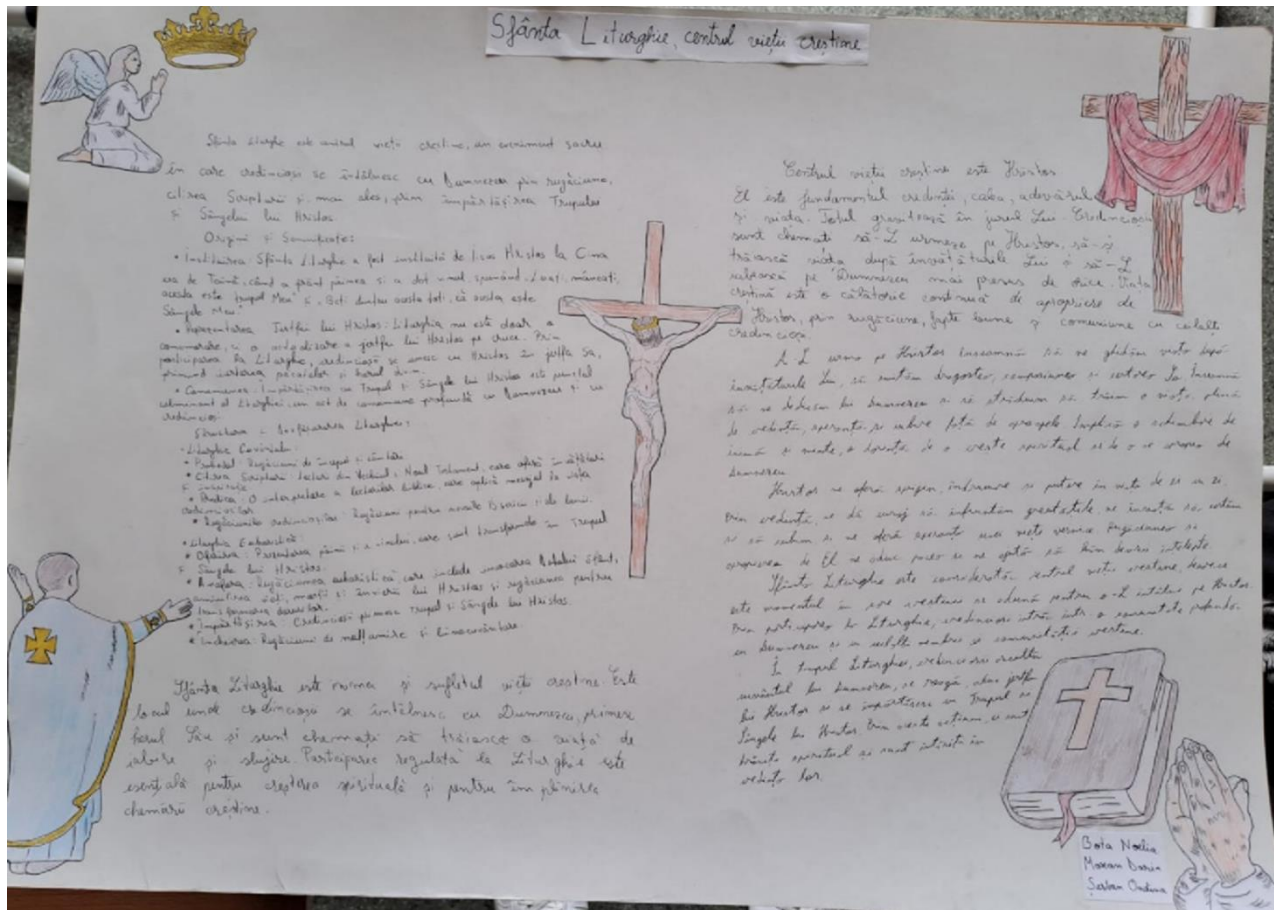 Sfânta Liturghie, centrul vieții creștine
Sfânta Liturghie este centrul vieții creștine, un eveniment sacru
în care credincioșii se întâlnesc cu Dumnezeu prin rugăciune,
citirea Scripturii și mai ales, prin împărtășirea Trupului
și Sângelui lui Hristos.
Origini și Semnificație:
• Instituirea: Sfânta Liturghie a fost instituită de Iisus Hristos la Cina
cea de Taină, când a frânt pâinea și a dat vinul, spunând: Luați, mâncați,
acesta este trupul Meu și, Beți dintru acesta toți, că acesta este
Sângele Meu!
• Reprezentarea Jertfei lui Hristos: Liturghia nu este doar o
comemorare, ci o actualizare a jertfei lui Hristos pe cruce. Prin
participarea la Liturghie, credincioșii se unesc cu Hristos în jertfa Sa,
primind iertarea păcatelor și harul divin.
• Comuniunea: Împărtășirea cu Trupul și Sângele lui Hristos este punctul
culminant al Liturghiei, un act de comuniune profundă cu Dumnezeu și cu
credincioșii
Structura și Desfășurarea Liturghiei:
• Liturghia Cuvântului:
• Preludiul: Rugăciuni de început și cântări
• Citirea Scripturii: Lecturi din Vechiul și Noul Testament, care oferă învățături
și
• Predica: O interpretare a lecturilor biblice, care aplică mesajul la viața
credincioșilor
• Rugăciunile credincioșilor: Rugăciuni pentru nevoile Bisericii și ale lumii.
• Liturghia Euharistică:
• Ofrairea: Prezentarea pâinii și a vinului, care sunt transformate în Trupul
și Sângele lui Hristos.
• Anafora: Rugăciunea euharistică, care include invocarea Duhului Sfânt,
amintirea vieții, morții și învierii lui Hristos și rugăciunea pentru
transformarea darurilor.
• Împărtășirea: Credincioșii primesc Trupul și Sângele lui Hristos.
• Încheierea: Rugăciuni de mulțumire și binecuvântare.
Sfânta Liturghie este inima și sufletul vieții creștine. Este
locul unde credincioșii se întâlnesc cu Dumnezeu, primesc
harul Său și sunt chemați să trăiască o viață de
iubire și slujire. Participarea regulată la Liturghie este
esențială pentru creșterea spirituală și pentru împlinirea
chemării creștine.
Centrul vieții creștine este Hristos
El este fundamentul credinței, calea, adevărul
și viața. Totul gravitează în jurul Lui. Credincioșii
sunt chemați să-L urmeze pe Hristos, să-și
trăiască viața după învățăturile Lui și să-L
iubească pe Dumnezeu mai presus de orice. Viața
creștină este o călătorie continuă de apropriere de
Hristos, prin rugăciune, fapte bune și comuniune cu ceilalți
credincioși.
A-L urma pe Hristos înseamnă să ne ghidăm viața după
învățăturile Lui, să imităm dragostea, compasiunea și iertarea Sa. Înseamnă
să ne dedicăm lui Dumnezeu și să străduim să trăim o viață plină
de credință, speranță și iubire față de aproapele. Implică o schimbare de
inimă și minte, o dorință de a crește spiritual și de a ne apropia de
Dumnezeu
Hristos ne oferă sprijin, îndrumare și putere în viața de zi cu zi.
Prin credință, ne dă curaj să înfruntăm greutățile, ne învață să iertăm
și să iubim și ne oferă speranța unei vieți veșnice. Rugăciunea și
apropierea de El ne aduc pace și ne ajută să luăm decizii înțelepte.
Sfânta Liturghie este considerată centrul vieții creștine, deoarece
este momentul în care creștinii se adună pentru a-L întâlni pe Hristos.
Prin participarea la Liturghie, credincioșii intră într-o comuniune profundă
cu Dumnezeu și cu ceilalți membrii ai comunității creștine.
În timpul Liturghiei, credincioșii ascultă
cuvântul lui Dumnezeu, se roagă, aduc jertfa
lui Hristos și se împărtășesc cu Trupul și
Sângele lui Hristos. Prin aceste acțiuni, ei sunt
hrăniți spiritual și sunt întăriți în
credința lor.
Bota Noelia
Moean Daria
Șerban Ondina